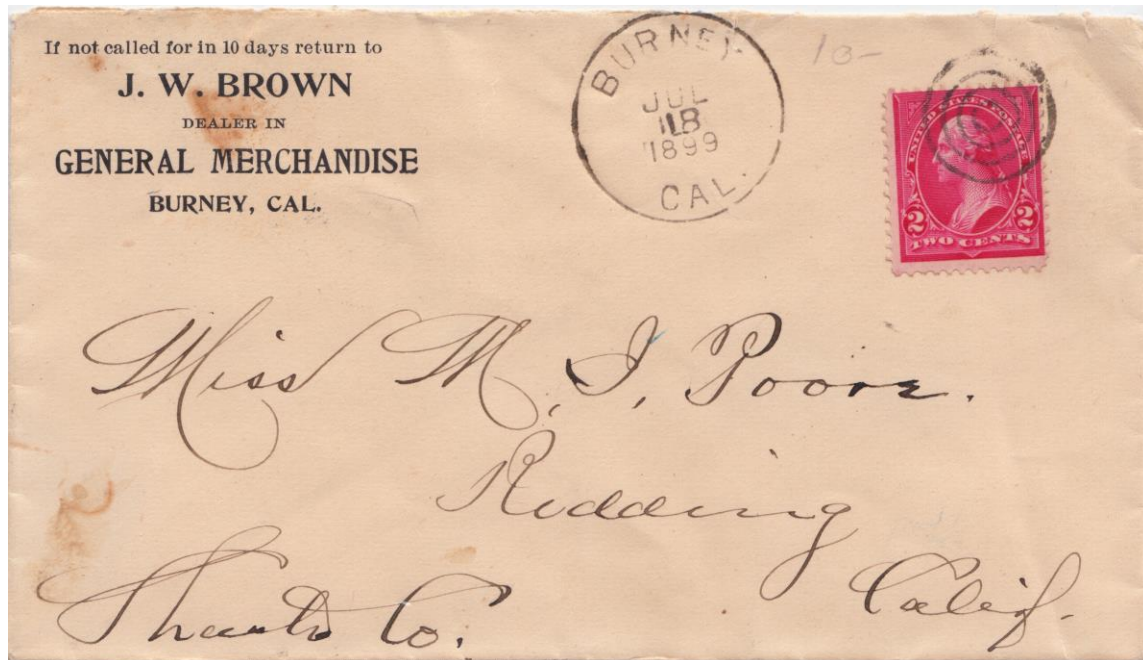 If not called for in 10 days return to
J. W. BROWN
DEALER IN
GENERAL MERCHANDISE
BURNEY, CAL.
BURNEY
JUL
18
1899
CAL.
10-
UNITED STATES POSTAGE
2 2
TWO CENTS
Miss M. I. Poore.
Redding
Shasta Co.
Calif.